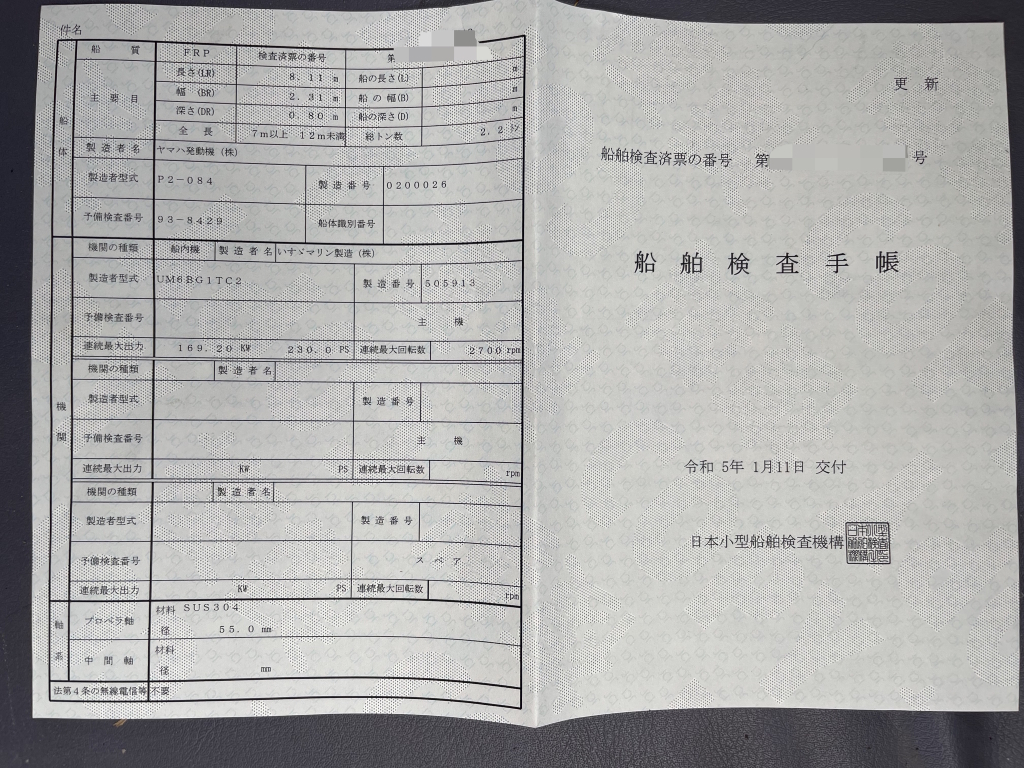 件名
船質 FRP 検査済票の番号 第
船体
主要目
長さ(LR) 8.11 m 船の長さ(L) m
幅(BR) 2.31 m 船の幅(B) m
深さ(DR) 0.80 m 船の深さ(D) m
全長 7m以上 12m未満 総トン数 2.2 トン
製造者名 ヤマハ発動機(株)
製造者型式 P2-084 製造番号 0200026
予備検査番号 93-8429 船体識別番号
機関
機関の種類 船内機 製造者名 いすゞマリン製造(株)
製造者型式 UM6BG1TC2 製造番号 505913
予備検査番号 主機
連続最大出力 169.20 KW 230.0 PS 連続最大回転数 2700 rpm
機関の種類 製造者名
製造者型式 製造番号
予備検査番号 主機
連続最大出力 KW PS 連続最大回転数 rpm
機関の種類 製造者名
製造者型式 製造番号
予備検査番号 スペア
連続最大出力 KW PS 連続最大回転数 rpm
軸系
プロペラ軸 材料 SUS304
径 55.0 mm
中間軸 材料
径 mm
法第4条の無線電信等 不要
更新
船舶検査済票の番号 第 号
船舶検査手帳
令和 5年 1月11日 交付
日本小型船舶検査機構